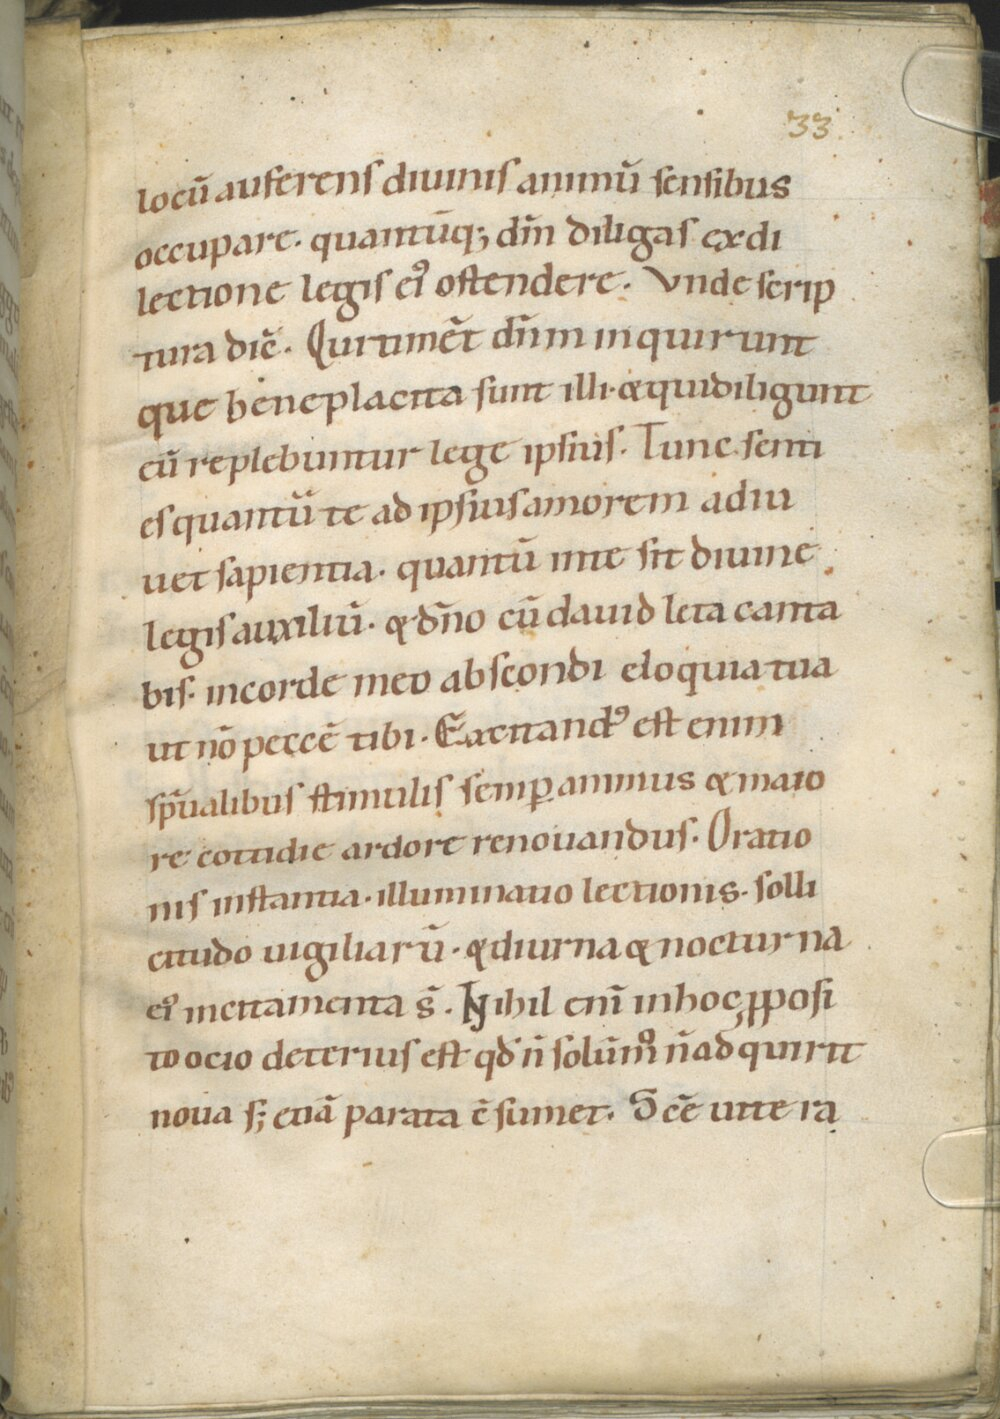 33
locū auferens diuinis animū sensibus
occupare. quantūq; dn̄m diligas ex di
lectione legis ei᾿ ostendere. Vnde scrip
tura dic̄. Qui timēt dn̄m inquirunt
que beneplacita sunt illi. & qui diligunt
eū replebuntur lege ipsius. Tunc senti
es quantū te ad ipsius amorem adiu
uet sapientia. quantū inte sit diuine
legis auxiliū. & dn̄o cū dauid leta canta
bis. incorde meo abscondi eloquia tua
ut nō peccē tibi. Excitand᾿ est enim
sp̄ualibus stimulis semp̄ animus & maio
re cottidie ardore renouandus. Oratio
nis instantia. illuminatio lectionis. solli
citudo uigiliarū. & diurna & nocturna
ei᾿ incitamenta s̄. Nihil enī inhoc ꝓposi
to ocio deterius est qd̄ n̄ solūm᾿ n̄ adquirit
noua s; etiā parata c̄sumet. Sc̄e uite ra